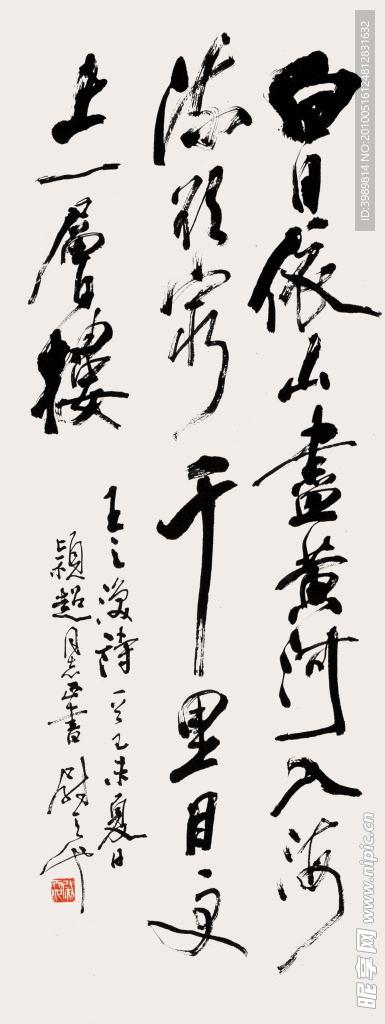 白日依山盡黄河入海
流欲窮千里目更
上一層樓
王之渙詩一首乙未夏日
穎超同志正書 尉天池
ID:3989814 NO:20100516124812831632
昵享网 www.nipic.cn